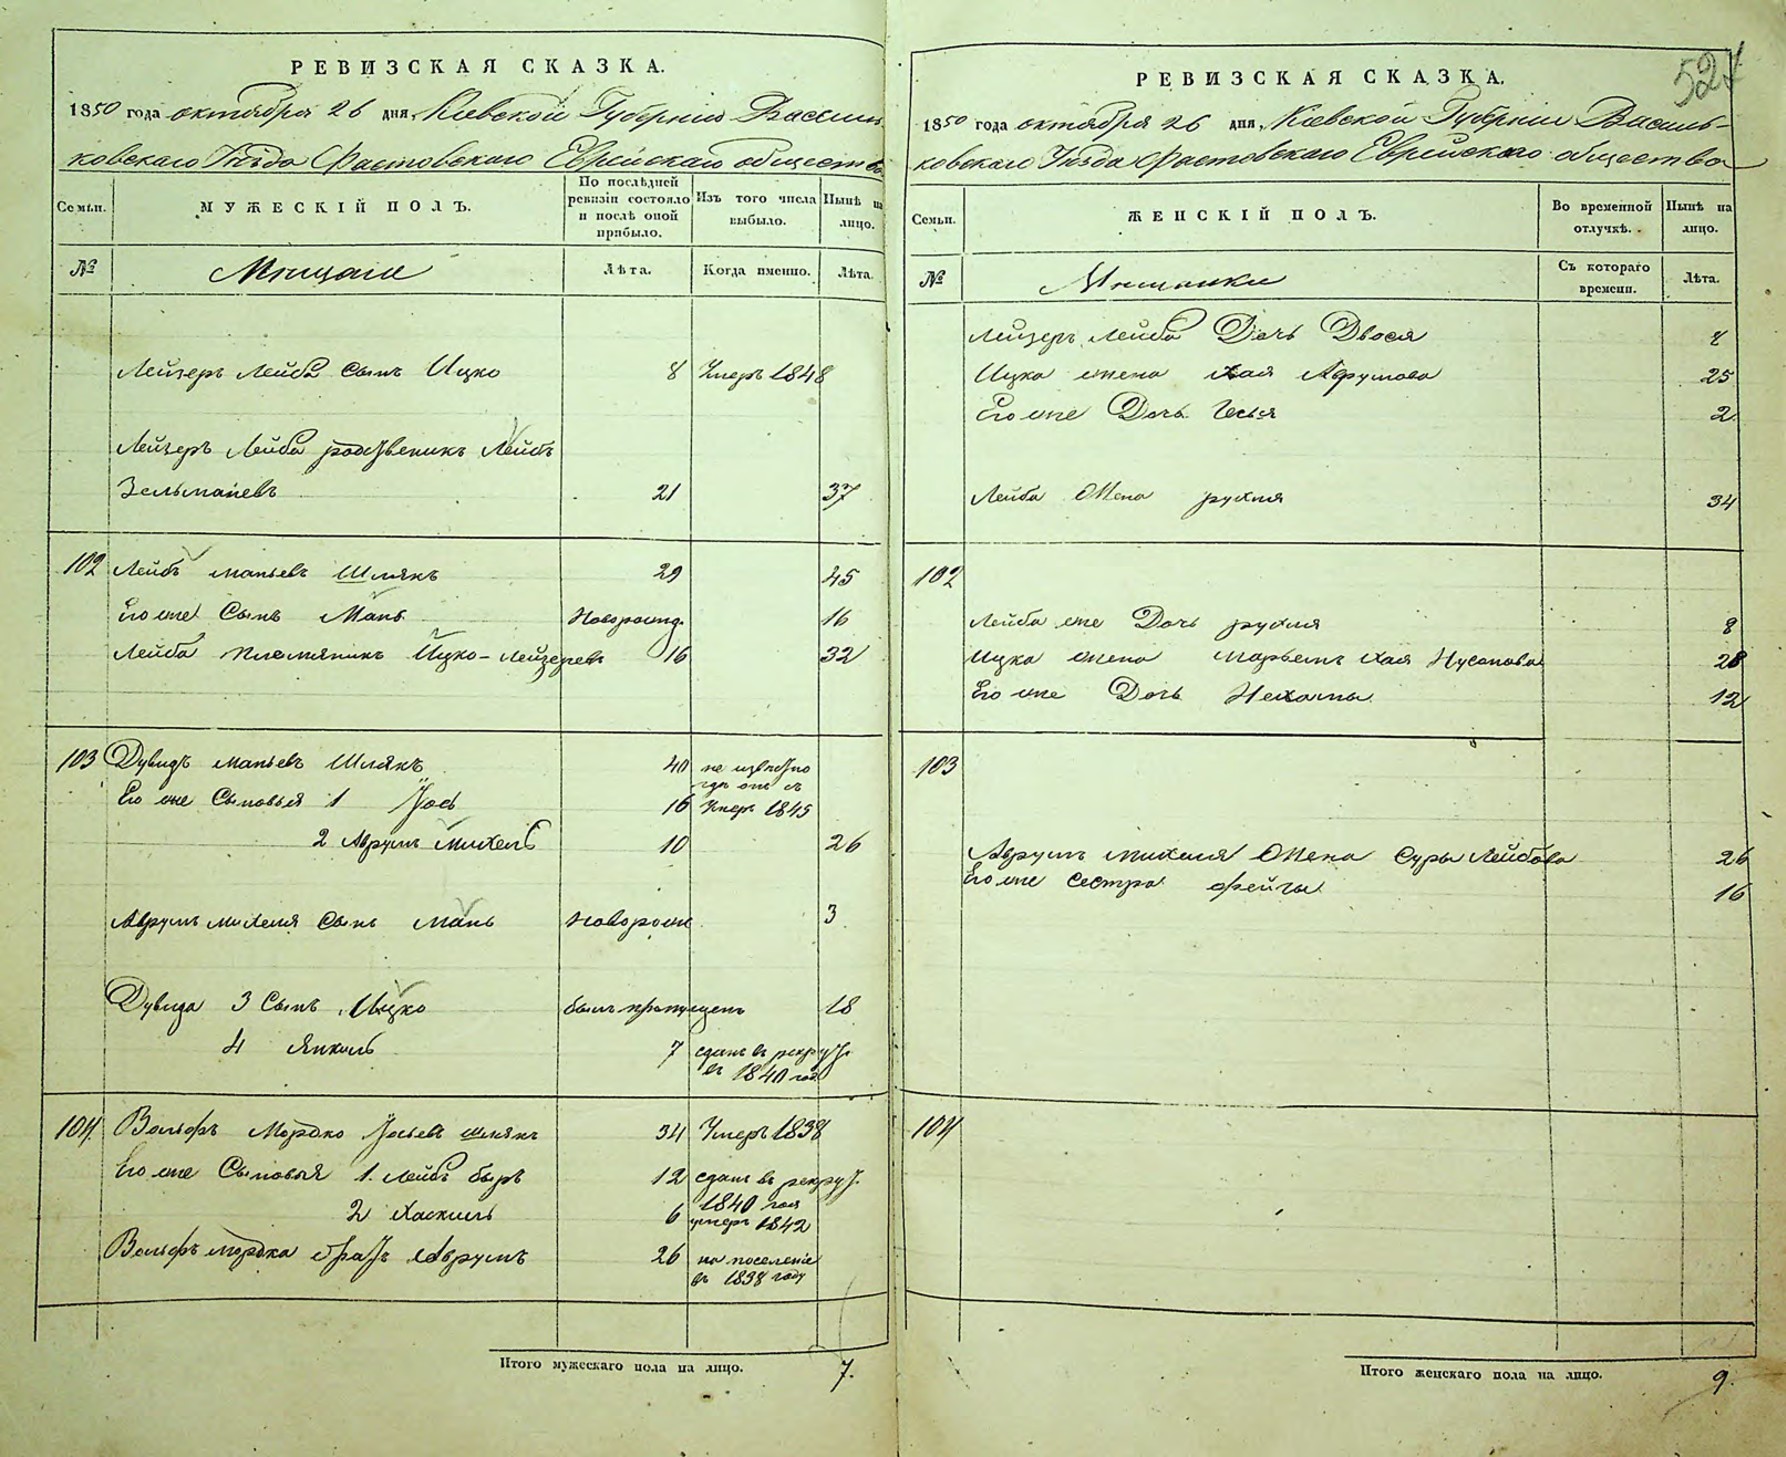 РЕВИЗСКАЯ СКАЗКА.
1850 года октября 26 дня, Кіевской Губерніи Василь-
ковскаго Уѣзда Фастовскаго Еврейскаго общества
Семьи.
МУЖЕСКІЙ ПОЛЪ.
По послѣдней ревизіи состояло и послѣ оной прибыло.
Изъ того числа выбыло.
Нынѣ на лицо.
№
Мещане
Лѣта.
Когда именно.
Лѣта.
Лейзеръ Лейба сынъ Ицко 8 Умеръ 1848
Лейзеръ Лейба родственикъ Лейбъ
Зельманевъ 21 37
102 Лейбъ Маньевъ Шлякъ 29 45
Его же Сынъ Мань Оворожд. 16
Лейба племяникъ Ицко-Лейзеревъ 16 32
103 Дувидъ Маньевъ Шлякъ 40 не извѣстно
гдѣ онъ съ
Его же Сыновья 1 Іось 16 Умеръ 1845
2 Аврумъ Михель 10 26
Аврумъ Михеля Сынъ Мань Оворожд 3
Дувида 3 Сынъ Ицко былъ пропущенъ 18
4 Янкель 7 сданъ въ рекрут.
въ 1840 год
104 Вольфъ Мордко Іосьевъ Шлякъ 34 Умеръ 1838
Его же Сыновья 1. Лейбъ Беръ 12 сданъ въ рекрут.
1840 года
2 Хаскель 6 умеръ 1842
Вольфъ Мордка братъ Аврумъ 26 на поселеніе
въ 1838 году
Итого мужескаго пола на лицо. 7.
524
РЕВИЗСКАЯ СКАЗКА.
1850 года октября 26 дня, Кіевской Губерніи Василь-
ковскаго Уѣзда Фастовскаго Еврейскаго общества
Семьи.
ЖЕНСКІЙ ПОЛЪ.
Во временной отлучкѣ.
Нынѣ на лицо.
№
Мещанки
Съ котораго времени.
Лѣта.
Лейзеръ Лейба Дочь Двося
Ицка жена Хая Аврумова 25
Его же Дочь Песья 2
Лейба Жена Рухля 34
102
Лейба же Дочь Рухля 8
Ицка жена Марьемъ Хая Нусонова 28
Его же Дочь Нехамы 12
103
Аврумъ Михеля Жена Суры Лейбова 26
Его же Сестра Фейги 16
104
Итого женскаго пола на лицо. 9.